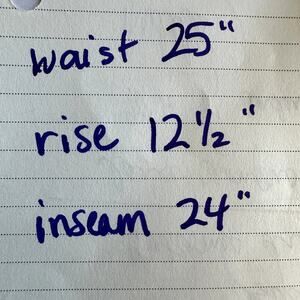 waist 25"
rise 12½"
inseam 24"